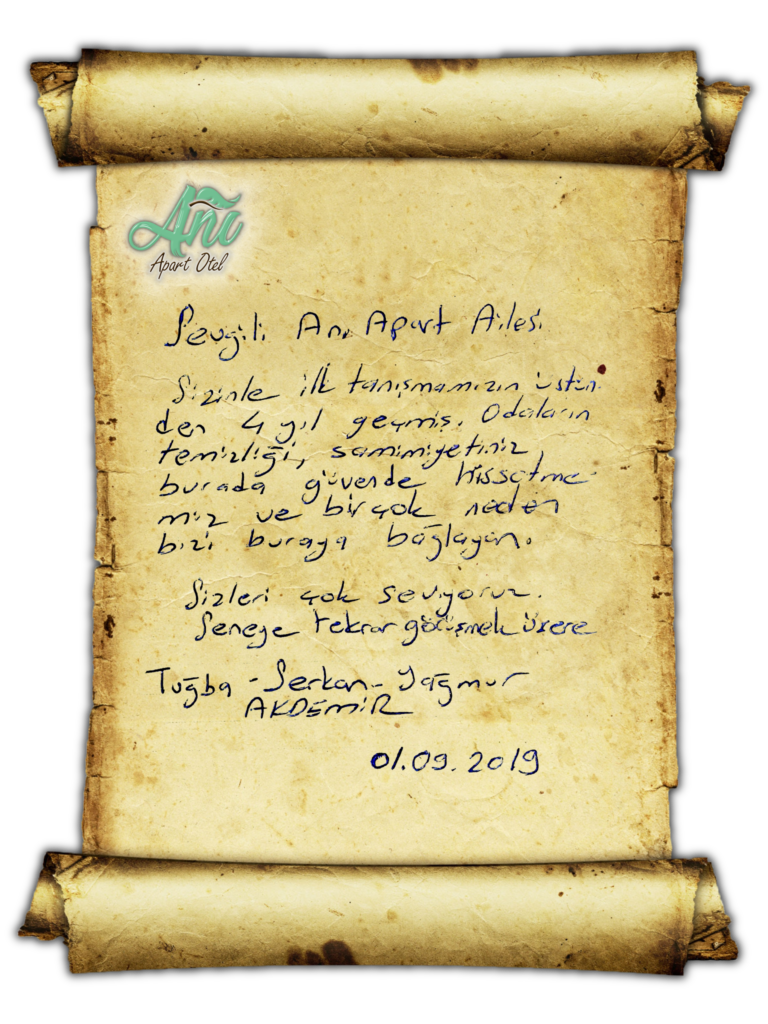 Anı
Apart Otel
Sevgili Anı Apart Ailesi
Sizinle ilk tanışmamızın üstün
den 4 yıl geçmiş. Odaların
temizliği, samimiyetiniz,
burada güvende hissetme
miz ve birçok neden
bizi buraya bağlayan.
Sizleri çok seviyoruz.
Seneye tekrar görüşmek üzere
Tuğba - Serkan - Yağmur
AKDEMİR
01.09.2019